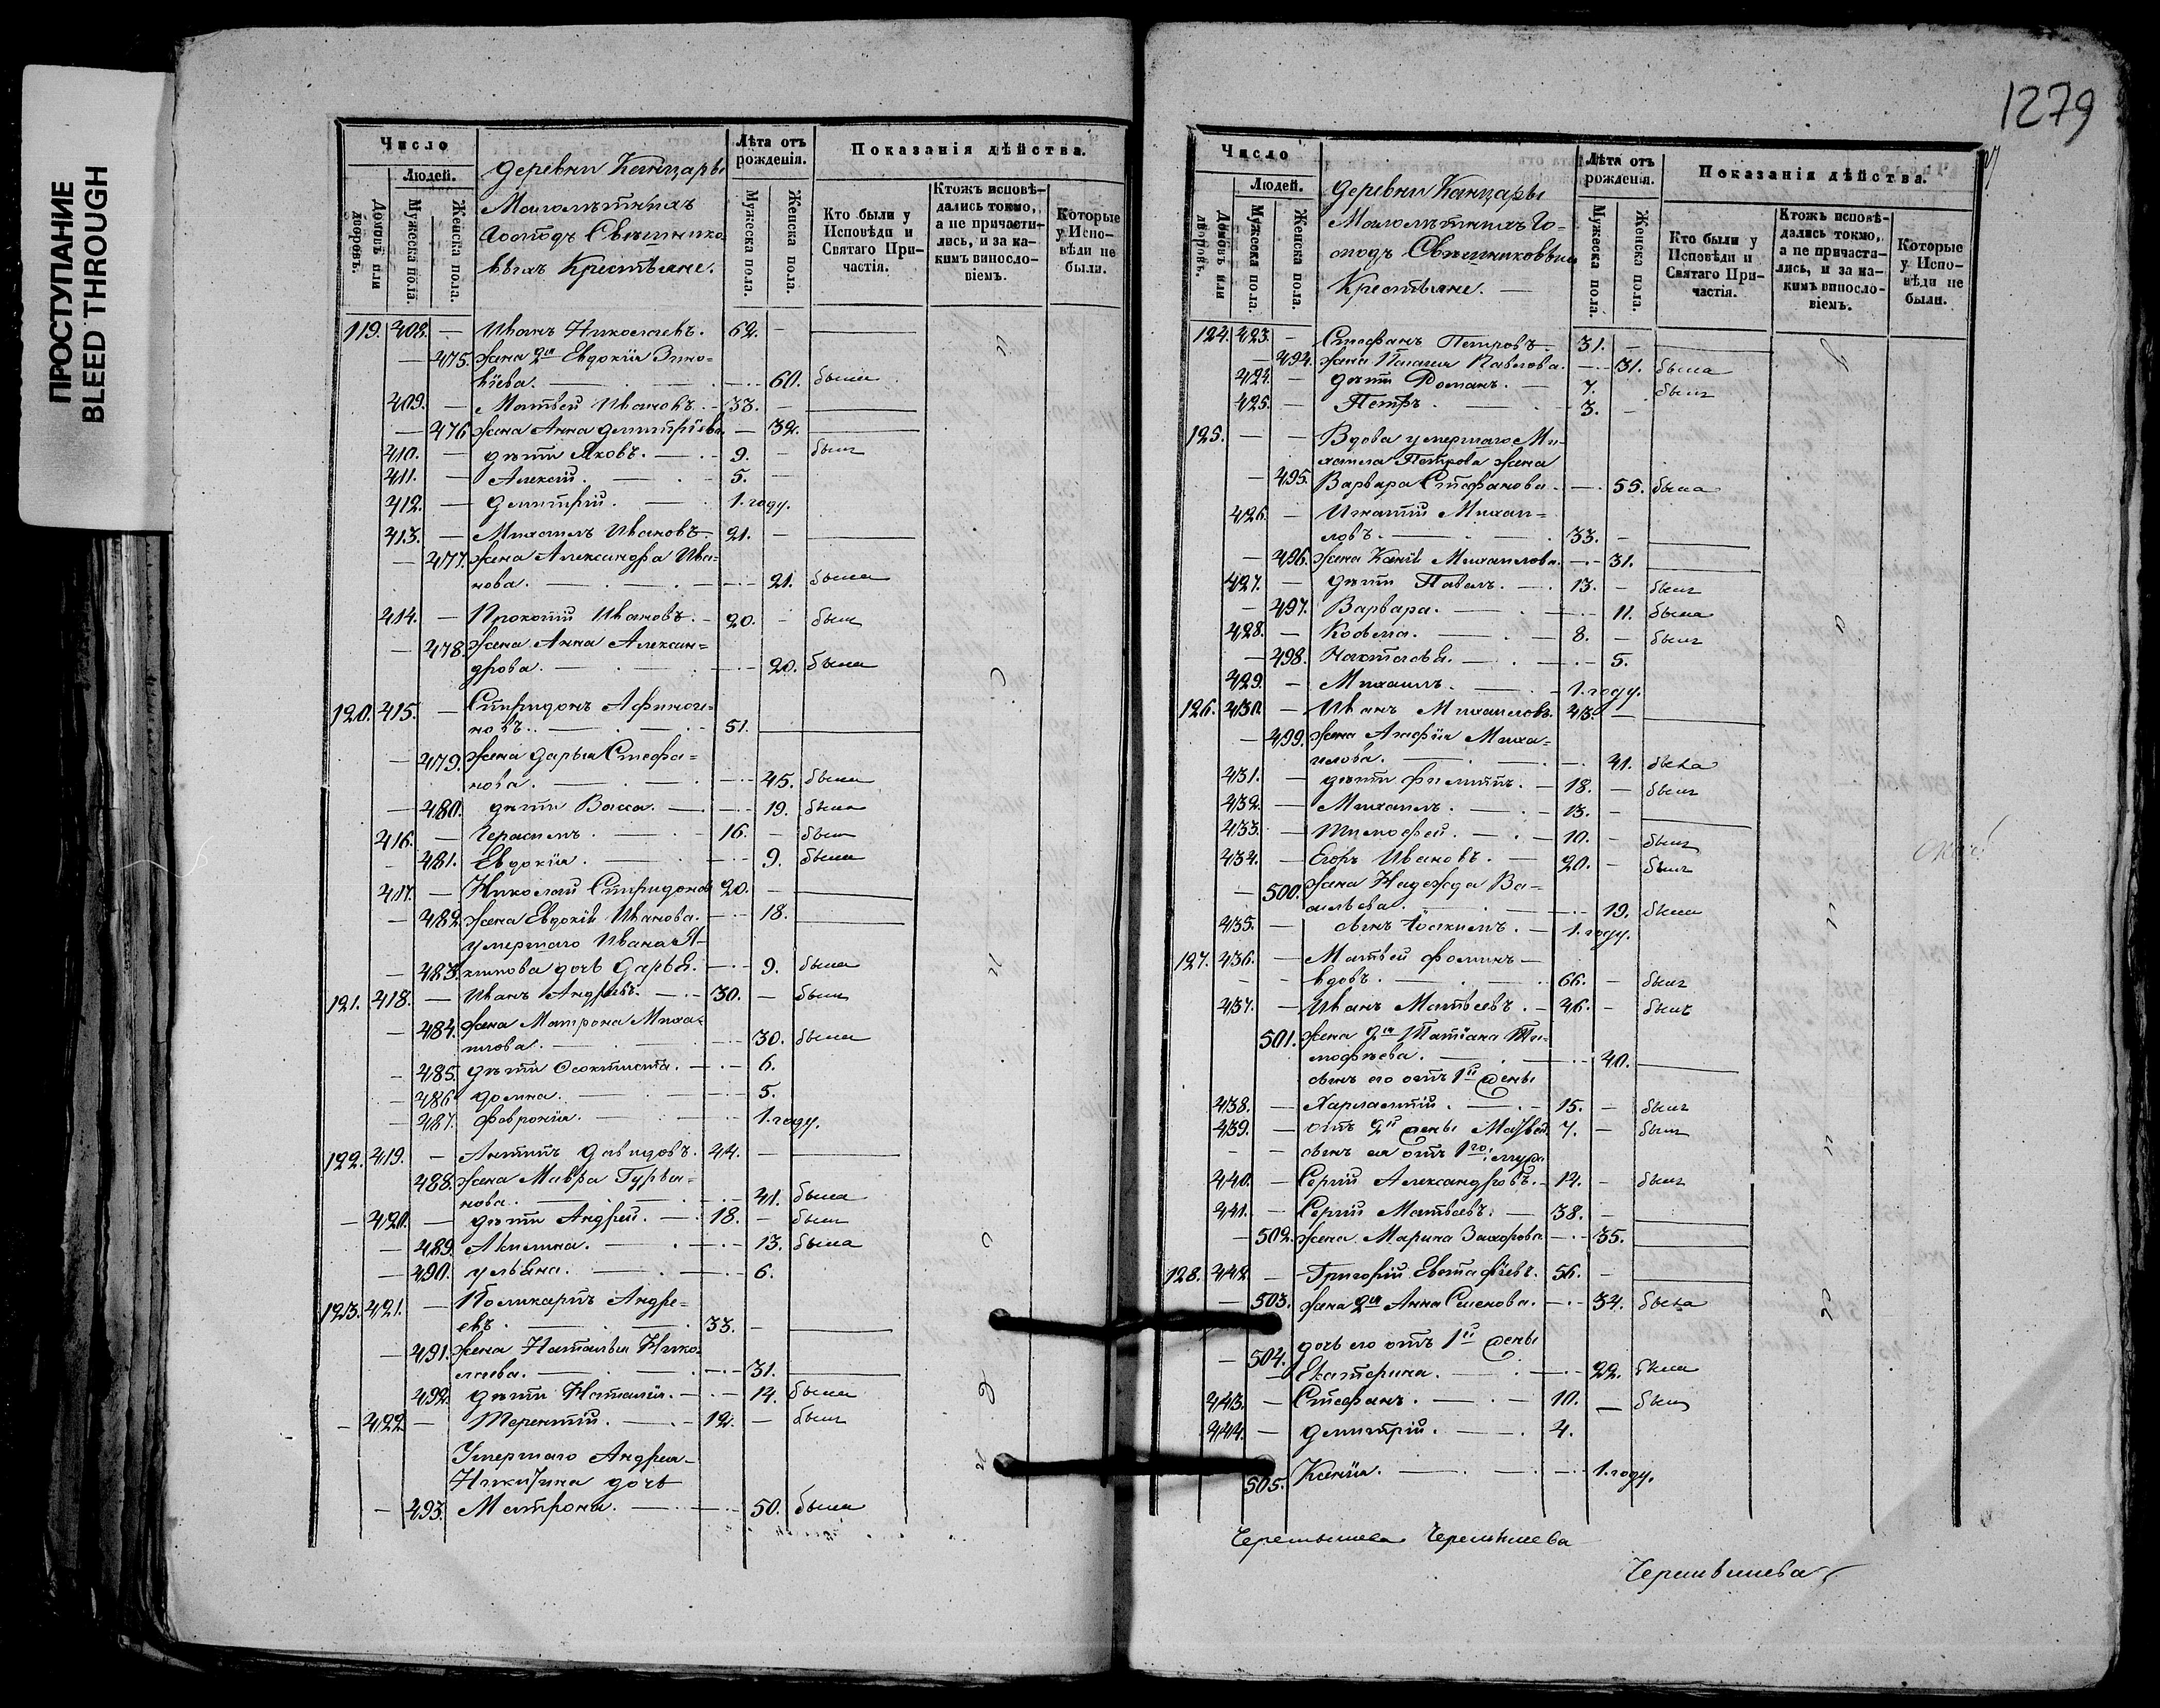 ПРОСТУПАНИЕ
BLEED THROUGH
Число
Людей.
Домовъ или дворовъ.
Мужеска пола.
Женска пола.
деревни Канцары
Малолѣтнихъ
Господъ Свѣшнико-
выхъ Крестьяне.
Лѣта отъ рожденія.
Мужеска пола.
Женска пола.
Показанія дѣйства.
Кто были у Исповѣди и Святаго Причастія.
Ктожъ исповѣ-
дались токмо,
а не причасти-
лись, и за ка-
кимъ винословіемъ.
Которые у Исповѣди не были.
119. 408. — Иванъ Николаевъ. 62. —
— 475. Жена 2я Евдокія Зино-
віева. — 60. была
409. — Матвей Ивановъ. 33. —
— 476 Жена Анна Димитріева — 32.
410. — дѣти Яковъ. 9. — былъ
411. — Алексѣй. 5. —
412. — Димитрій. 1. году.
413. — Михаилъ Ивановъ. 21. —
— 477. Жена Александра Ива-
нова. — 21. была
414. — Прокопій Ивановъ. 20. — былъ
— 478. Жена Анна Алексан-
дрова. — 20. была
120. 415. — Спиридонъ Афиноге-
новъ. 51.
— 479. Жена Дарья Стефа-
нова. — 45. была
— 480. дѣти Васса. — 19. была
416. — Герасимъ. 16. — былъ
— 481. Евдокія. — 9. была
417. — Николай Спиридоновъ 20. —
— 482. Жена Евдокія Иванова. — 18.
умершаго Ивана Я-
— 483. кимова дочь Дарья. — 9. была
121. 418. — Иванъ Андреевъ. 30. — былъ
— 484. Жена Матрона Миха-
илова. — 30. была
— 485. дѣти Феоктиста. — 6.
— 486. Домна. — 5.
— 487. Февронія. — 1. году.
122. 419. — Антипъ Давидовъ. 44. —
488. Жена Мавра Гурья-
нова. — 41. была
— 420. — дѣти Андрей. 18. — былъ
— 489. Акилина. — 13. была
— 490. Ульяна. — 6.
123. 421. — Поликарпъ Андре-
евъ. 33. —
— 491. Жена Наталья Нико-
лаева. — 31.
492. дѣти Наталія. — 14. была
— 422. — Терентій. 12. — былъ
Умершаго Андрея
Никитина дочь
— 493. Матрона. — 50. была
1279
Число
Людей.
Домовъ или дворовъ.
Мужеска пола.
Женска пола.
деревни Канцары
Малолѣтнихъ Го-
сподъ Свѣшниковыхъ
Крестьяне. —
Лѣта отъ рожденія.
Мужеска пола.
Женска пола.
Показанія дѣйства.
Кто были у Исповѣди и Святаго Причастія.
Ктожъ исповѣ-
дались токмо,
а не причаста-
лись, и за ка-
кимъ винословіемъ.
Которые у Исповѣди не были.
124. 423. — Стефанъ Петровъ. 31. —
— 494. Жена Пелагея Павлова. — 31. была
424. — дѣти Романъ. 7. былъ
425. — Петръ. 3. —
125. — — Вдова умершаго Ми-
хаила Петрова жена
— 495. Варвара Стефанова. — 55. была
426. — Игнатій Михаи-
ловъ. 33. —
— 496. Жена Ксенія Михаилова. — 31.
427. — дѣти Павелъ. 13. — былъ
— 497. Варвара. — 11. была
428. — Косьма. 8. — былъ
— 498. Наталья. — 5.
429. — Михаилъ. 1. году.
126. 430. — Иванъ Михаиловъ. 43. —
— 499. Жена Агафія Миха-
илова. — 41. была
431. — дѣти Филиппъ. 18. — былъ
432. — Михаилъ. 13. —
433. — Тимофей. 10. — былъ
434. — Егоръ Ивановъ. 20. — былъ
— 500. Жена Надежда Ва-
сильева. — 19. была
435. — сынъ Іоакимъ. 1. году.
127. 436. — Матвей Фоминъ —
— — вдовъ. 66. — былъ
437. — Иванъ Матвеевъ. 46. — былъ
501. Жена 2я Татіана Ти-
мофѣева. — 40.
сынъ его отъ 1й жены
438. — Харлампій. 15. — былъ
439. — отъ 2й жены Матвей 7. — былъ
— — сынъ ея отъ 1го мужа
440. — Сергій Александровъ. 14. — былъ
441. — Сергій Матвеевъ. 38. —
— 502. Жена Марина Захарова — 35.
128. 442. — Григорій Евстафіевъ. 56. —
— 503. Жена 2я Анна Семенова. — 34. была
дочь его отъ 1й жены
— 504. Екатерина. — 22. была
443. — Стефанъ. 10. — былъ
444. — Димитрій. 4.
505. Ксенія. — 1. году.